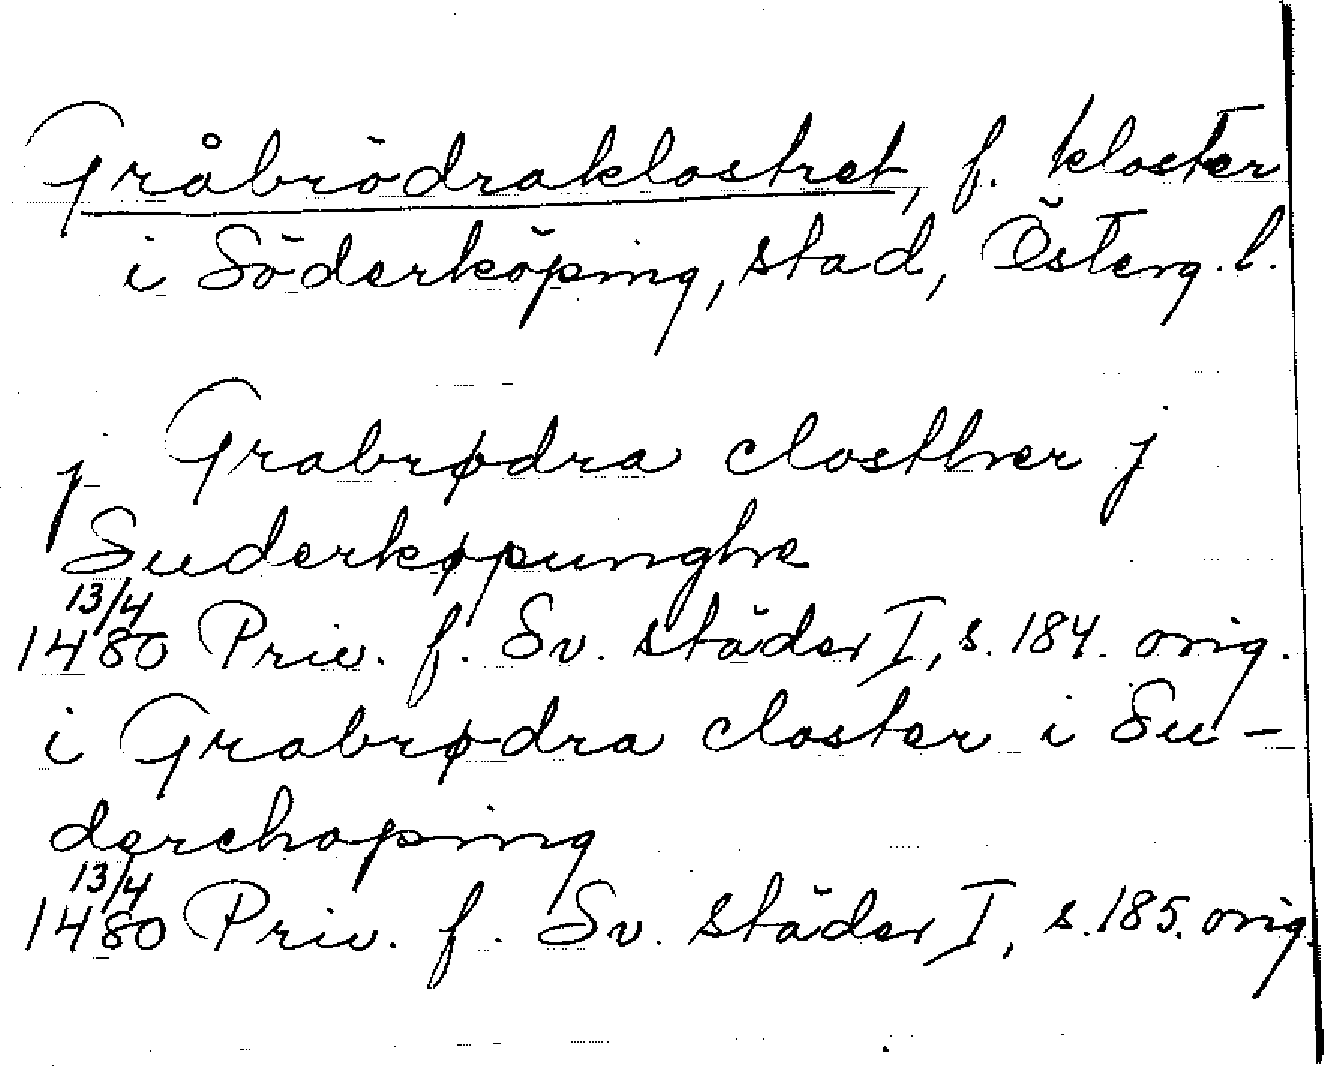 Gråbrödraklostret, f. kloster
i Söderköping, stad, Österg. l.
j Grabrødra closthær j
Suderkøpunghe
13/4
1480 Priv. f. Sv. städer I, s. 184. orig.
i Grabrødra closter i Su-
derchoping
13/4
1480 Priv. f. Sv. städer I, s. 185. orig.